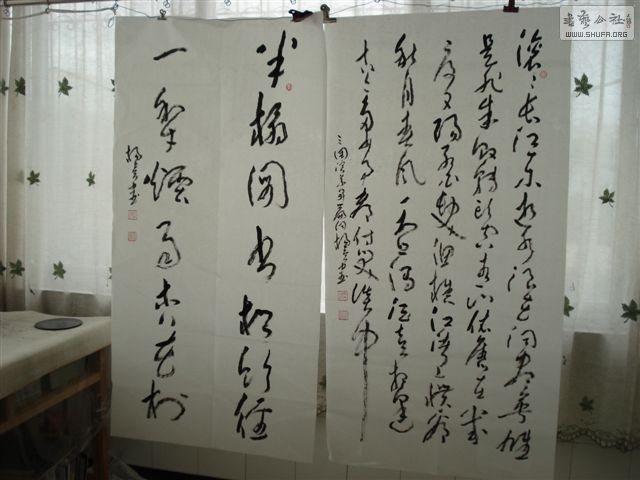 滚滚长江东逝水浪花淘尽英雄
是非成败转头空青山依旧在几
度夕阳红白发渔樵江渚上惯看
秋月春风一壶浊酒喜相逢
古今多少事都付笑谈中
三国演义开篇词
半榻书松竹径
一犁烟雨杏花村
書藝公社
WWW.SHUFA.ORG